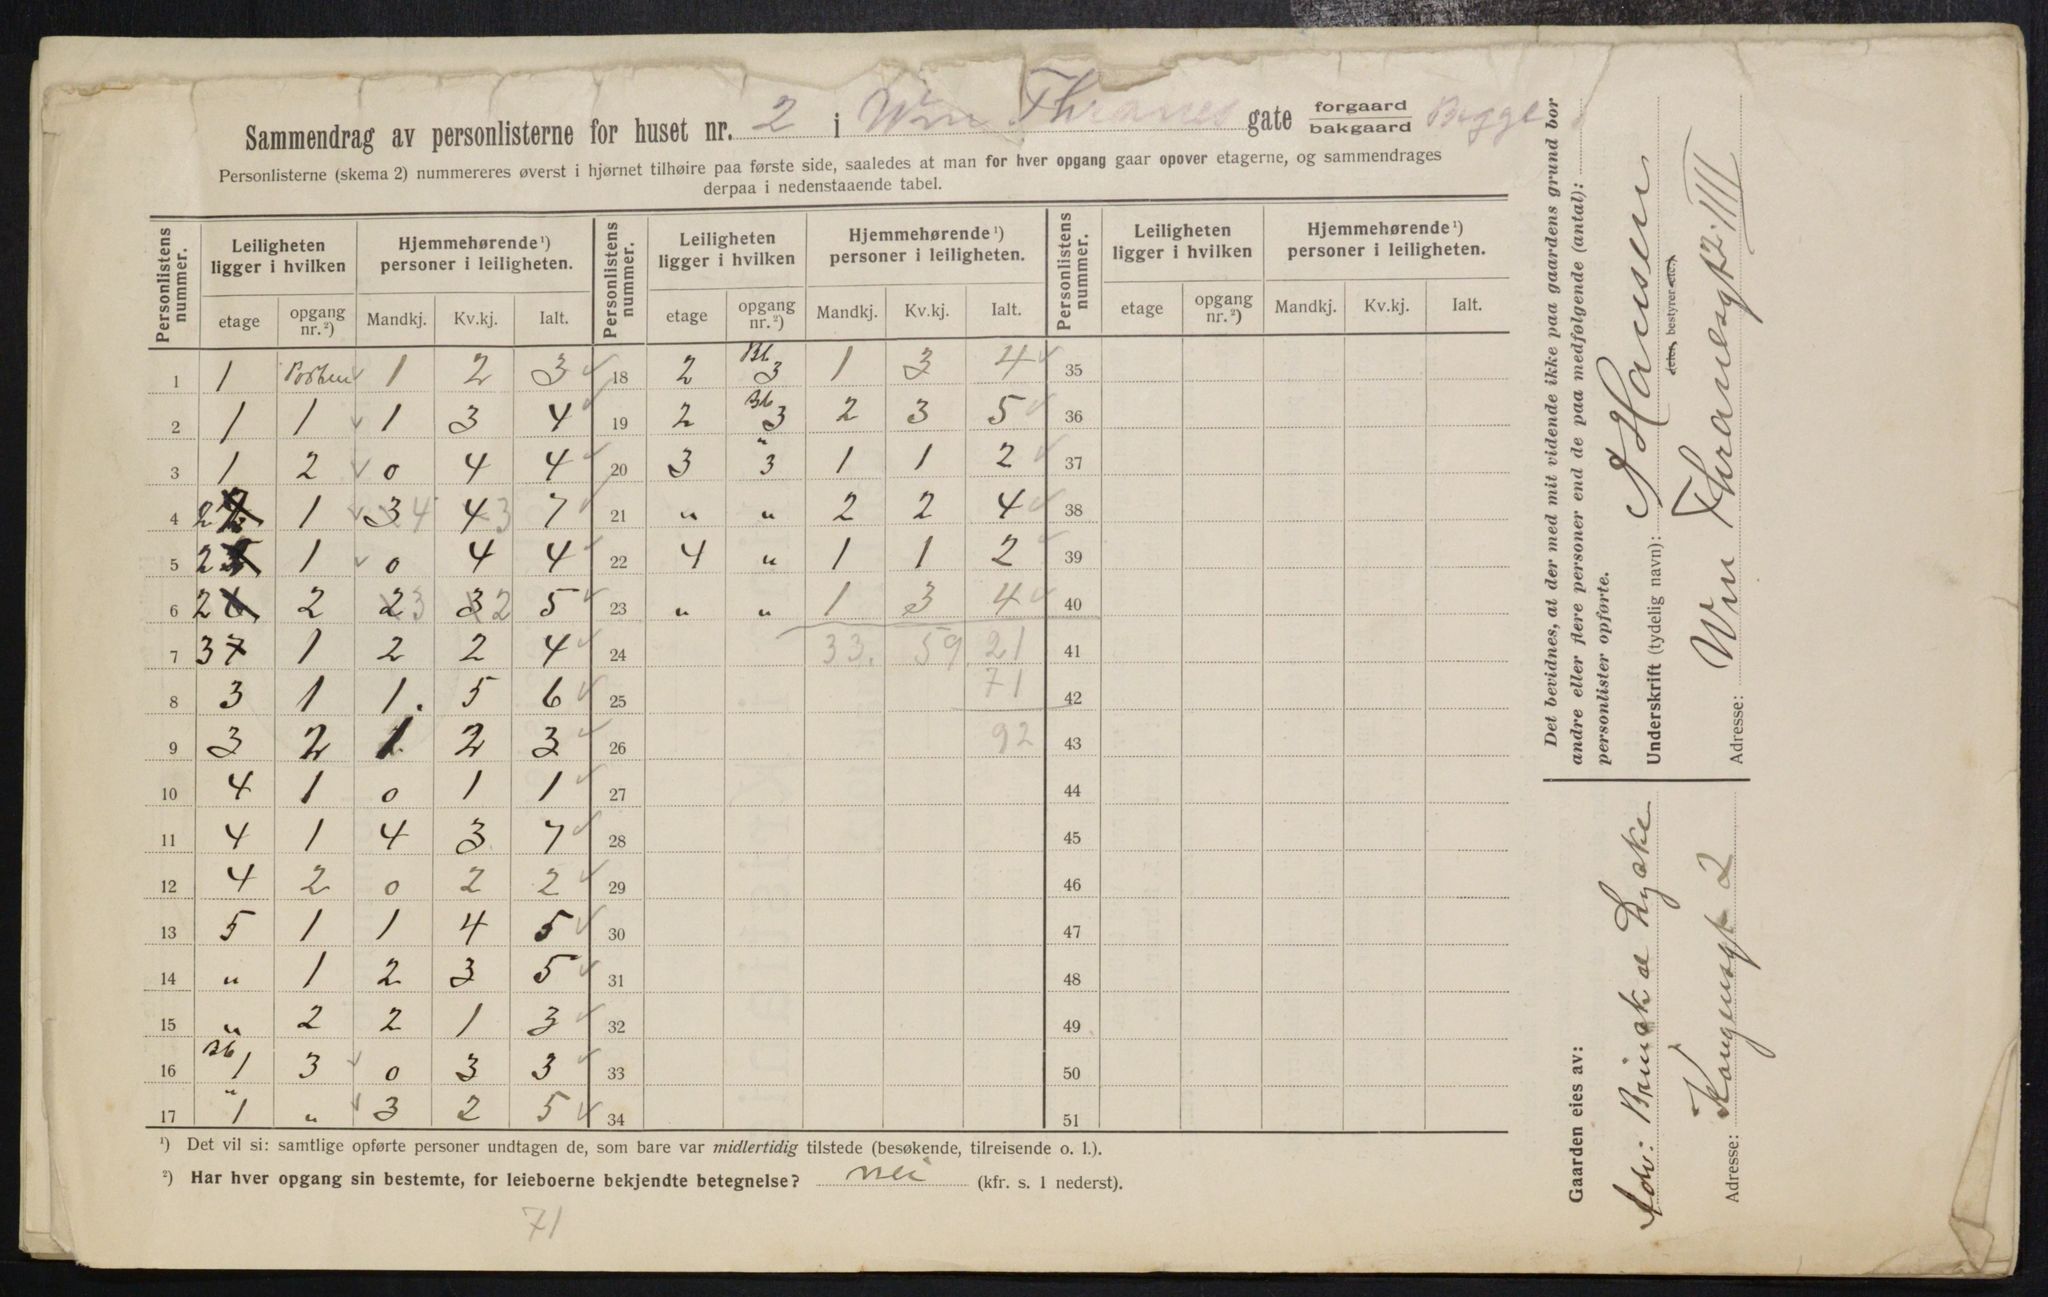 Sammendrag av personlisterne for huset nr. 2 i Wm Thranes gate forgaard bakgaard Begge
Personlisterne (skema 2) nummereres øverst i hjørnet tilhøire paa første side, saaledes at man for hver opgang gaar opover etagerne, og sammendrages
derpaa i nedenstaaende tabel.
Personlistens nummer. Leiligheten ligger i hvilken Hjemmehørende ¹) personer i leiligheten. Personlistens nummer. Leiligheten ligger i hvilken Hjemmehørende ¹) personer i leiligheten. Personlistens nummer. Leiligheten ligger i hvilken Hjemmehørende ¹) personer i leiligheten.
etage opgang nr. ²) Mandkj. Kv.kj. Ialt. etage opgang nr. ²) Mandkj. Kv.kj. Ialt. etage opgang nr. ²) Mandkj. Kv.kj. Ialt.
1 1 1 2 3 18 2 Bb 3 1 3 4 35
2 1 1 1 3 4 19 2 Bb 3 2 3 5 36
3 1 2 0 4 4 20 3 " 3 1 1 2 37
4 2 1 3 4 4 3 7 21 " " 2 2 4 38
5 2 1 0 4 4 22 4 " 1 1 2 39
6 2 6 2 2 3 3 2 5 23 " " 1 3 4 40
7 3 7 1 2 2 4 24 33. 59 21 41
8 3 1 1. 5 6 25 71 42
9 3 2 1 2 3 26 92 43
10 4 1 0 1 1 27 44
11 4 1 4 3 7 28 45
12 4 2 0 2 2 29 46
13 5 1 1 4 5 30 47
14 " 1 2 3 5 31 48
15 " 2 2 1 3 32 49
16 Bb 1 3 0 3 3 33 50
17 " 1 " 3 2 5 34 51
¹) Det vil si: samtlige opførte personer undtagen de, som bare var midlertidig tilstede (besøkende, tilreisende o. l.).
²) Har hver opgang sin bestemte, for leieboerne bekjendte betegnelse? nei (kfr. s. 1 nederst).
71
Det bevidnes, at der med mit vidende ikke paa gaardens grund bor
andre eller flere personer end de paa medfølgende (antal): 
personlister opførte.
Underskrift (tydelig navn): A Hansen
eier, bestyrer etc.)
Adresse: Wm Thranesgt 2. IIII
Gaarden eies av:
Adv: Brinsk
Adresse: Kongensgt 2